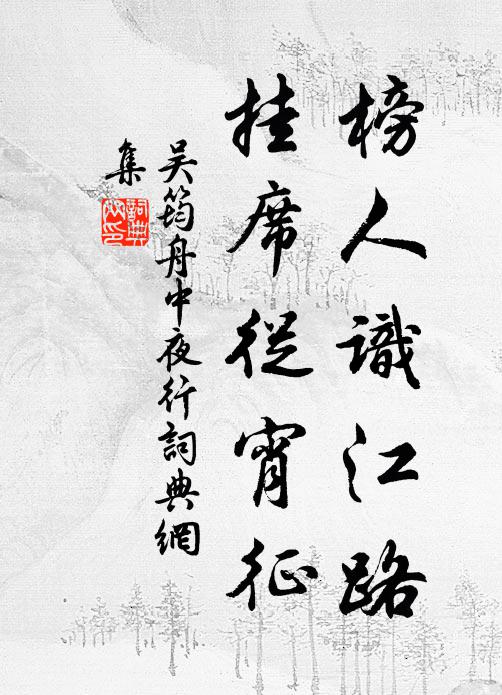 榜人識江路
挂席從宵征
吴筠舟中夜行詞典網
集
詞典
网印